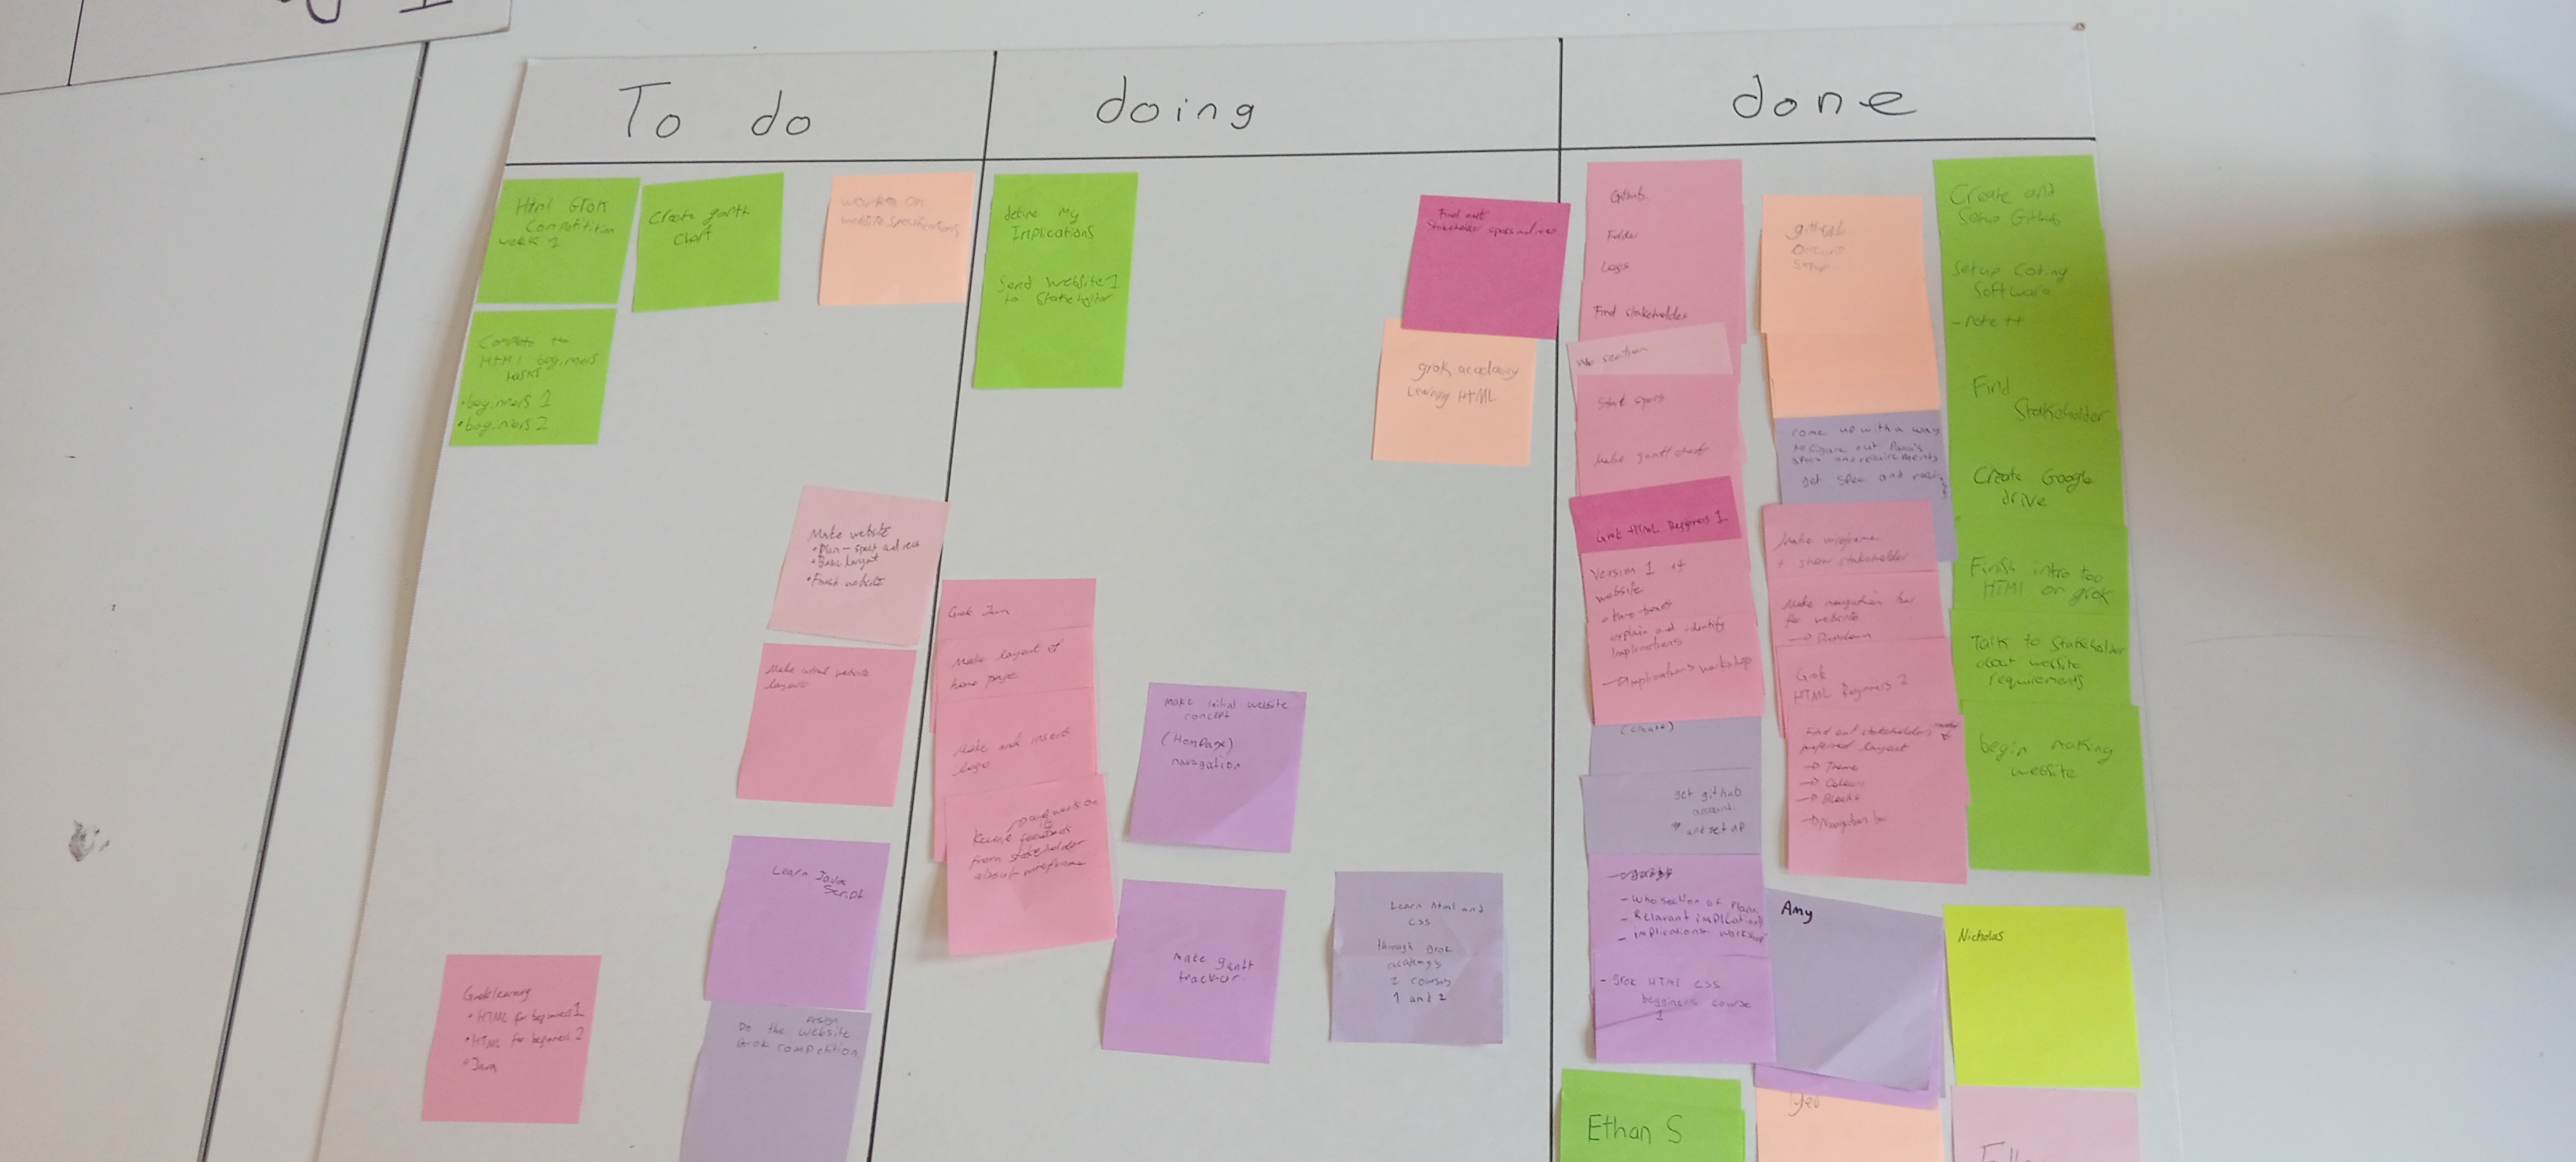 To do
doing
done
Html Grok
Competition
week 1
Create gantt
chart
work on
website specifications
Complete the
HTML beginners
tasks
•beginners 1
•beginners 2
Make website
•Plan - specs and
•Basic layout
•Finish website
Make initial website
layout
Learn Java
Script
Grok learning
•HTML for beginners 1
•HTML for beginners 2
•Java
Design
Do the website
Grok competition
define my
Implications
Send website 1
to Stakeholder
Find out
Stakeholder specs and
grok academy
Learning HTML
Grok Java
Make layout of
home page
Make and insert
logo
and work on
feedback
from stakeholder
about wireframe
make initial website
concept
(Hompage)
navigation
make gantt
tracker
Learn html and
css
through grok
academys
2 courses
1 and 2
Github
Folder
Logs
Find stakeholder
Who section
Start specs
Make gantt chart
Grok HTML Beginners 1
Version 1 of
website
explain and identify
implications
workshop
get github
account
and set up
- who section of Plan
- Relavant implications
- implications
- grok HTML CSS
begginers course
1
github
account
setup
come up with a way
to figure out
specs and requirements
get spec and
Make wireframe
+ show stakeholder
Make navigation bar
for website
Grok
HTML Beginners 2
Find out stakeholders
preferred layout
→ Theme
→ Colours
→ Blocks
→ Navigation bar
Create and
Setup Github
Setup Coding
Software
- note ++
Find
Stakeholder
Create Google
drive
Finish intro too
HTML on grok
Talk to Stakeholder
about website
requirements
begin making
website
Amy
Nicholas
Ethan S